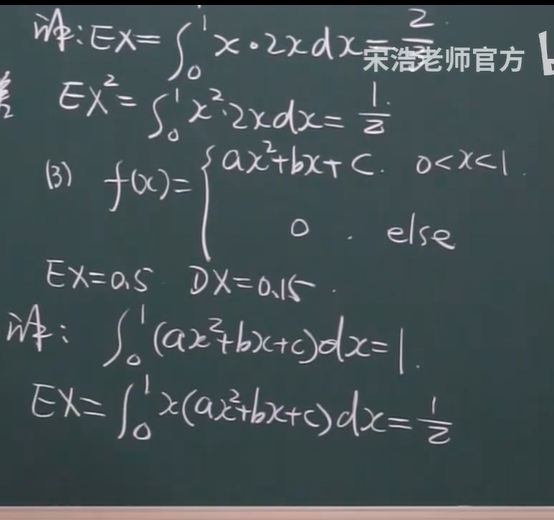 解: EX=∫₀¹ x·2xdx=2/3
宋浩老师官方
差 EX²=∫₀¹x²·2xdx=1/2
(3) f(x)={ax²+bx+c. 0<x<1.
0. else
EX=0.5 DX=0.15.
解: ∫₀¹(ax²+bx+c)dx=1.
EX=∫₀¹x(ax²+bx+c)dx=1/2